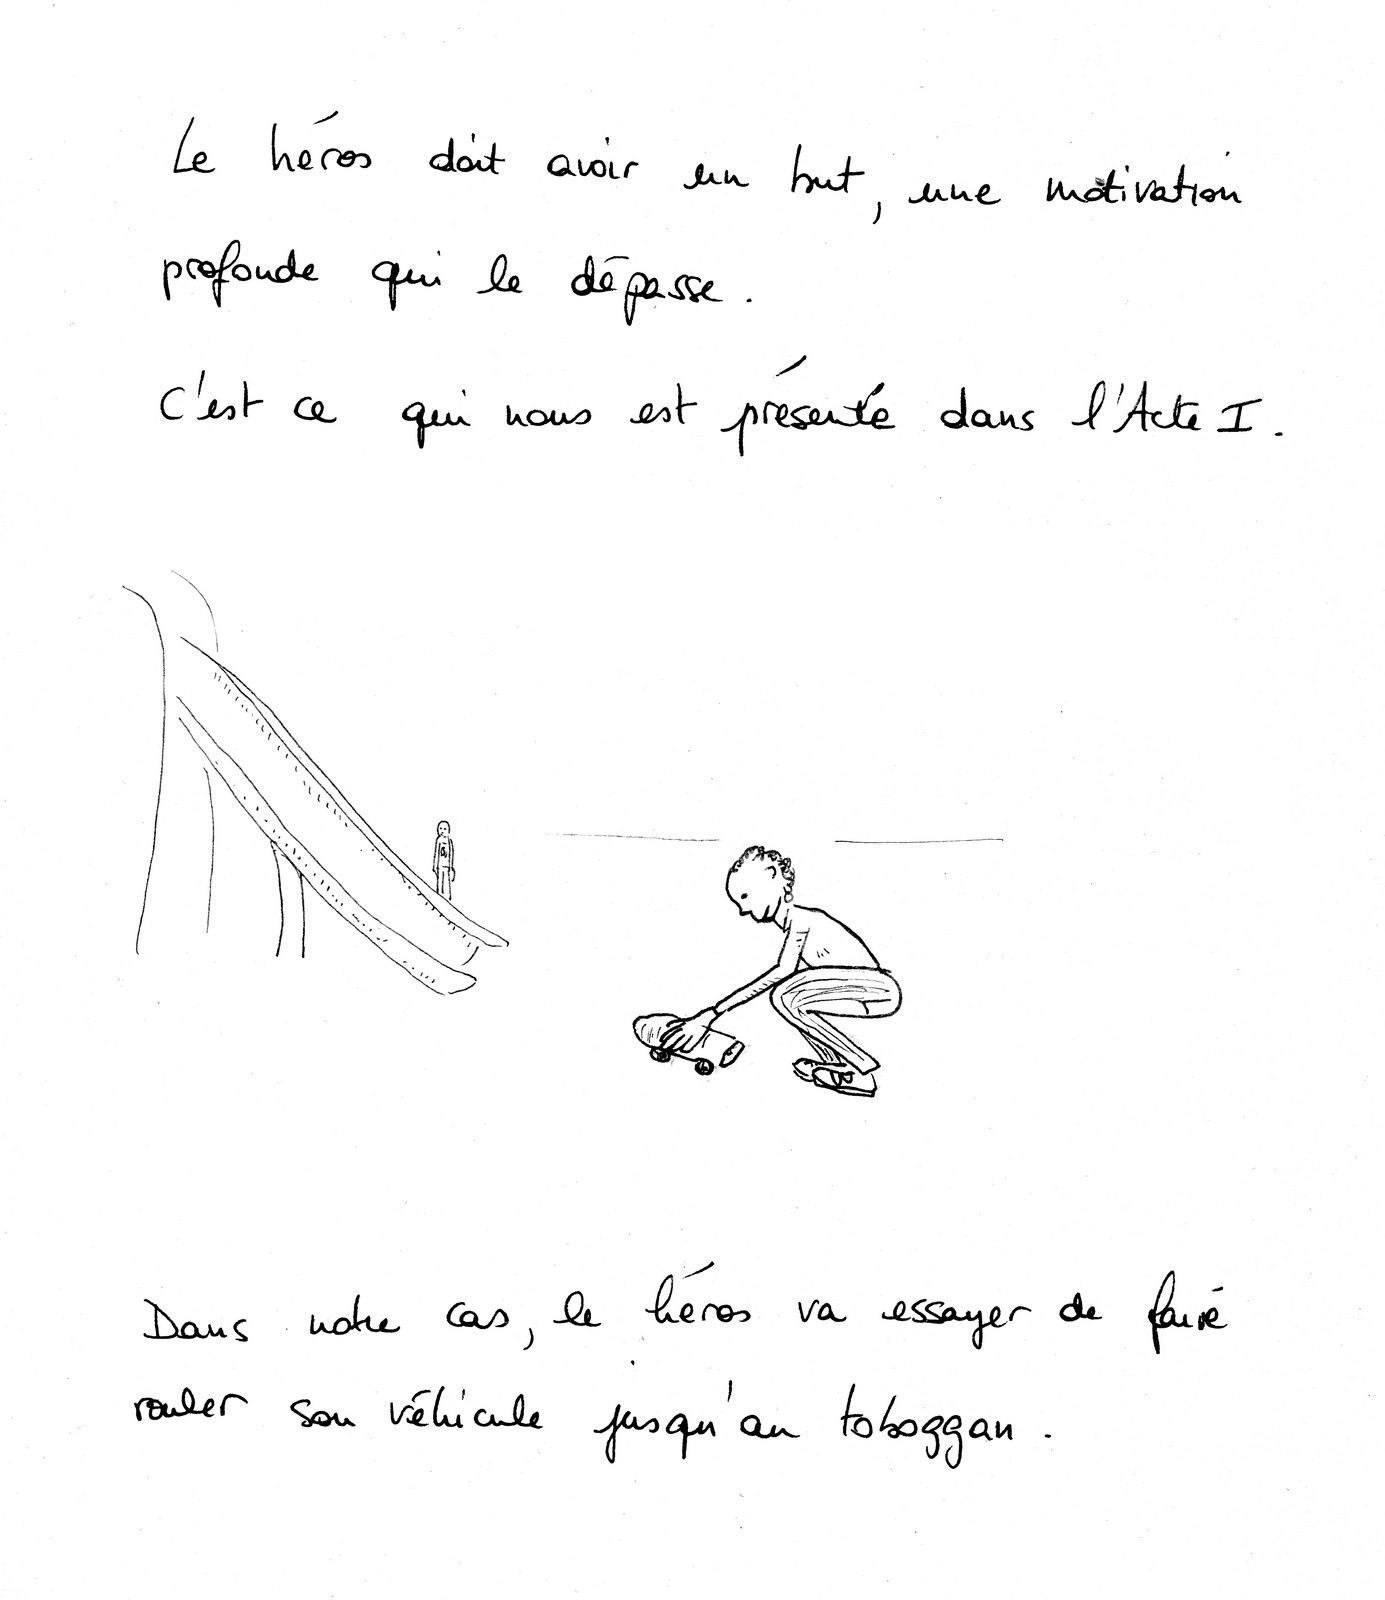 Le héros doit avoir un but, une motivation
profonde qui le dépasse.
C'est ce qui nous est présenté dans l'Acte I.
Dans notre cas, le héros va essayer de faire
rouler son véhicule jusqu'au toboggan.